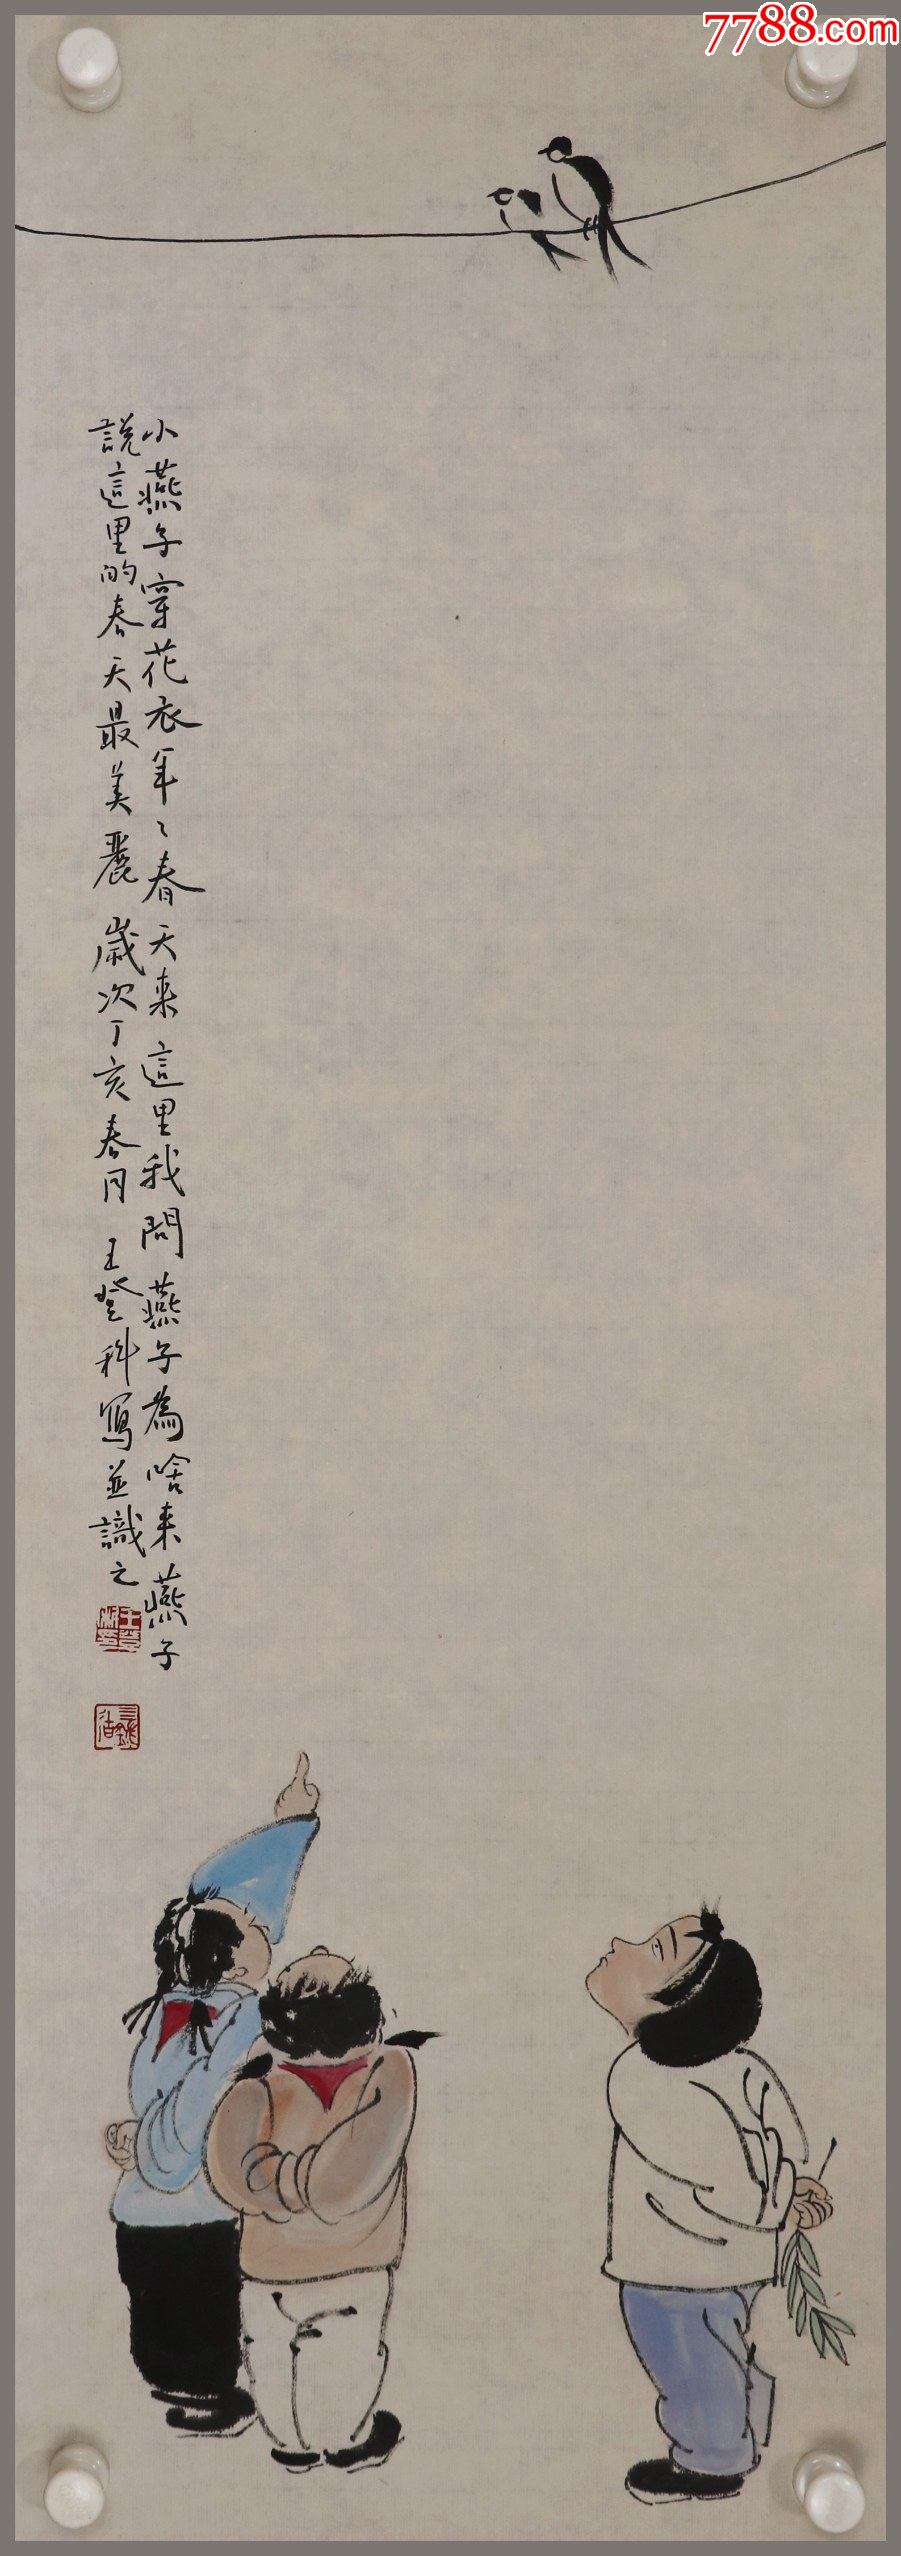 7788.com
小燕子穿花衣年〻春天来這里我問燕子為啥来燕子
說這里的春天最美麗 歲次丁亥春月 王登科寫並識之